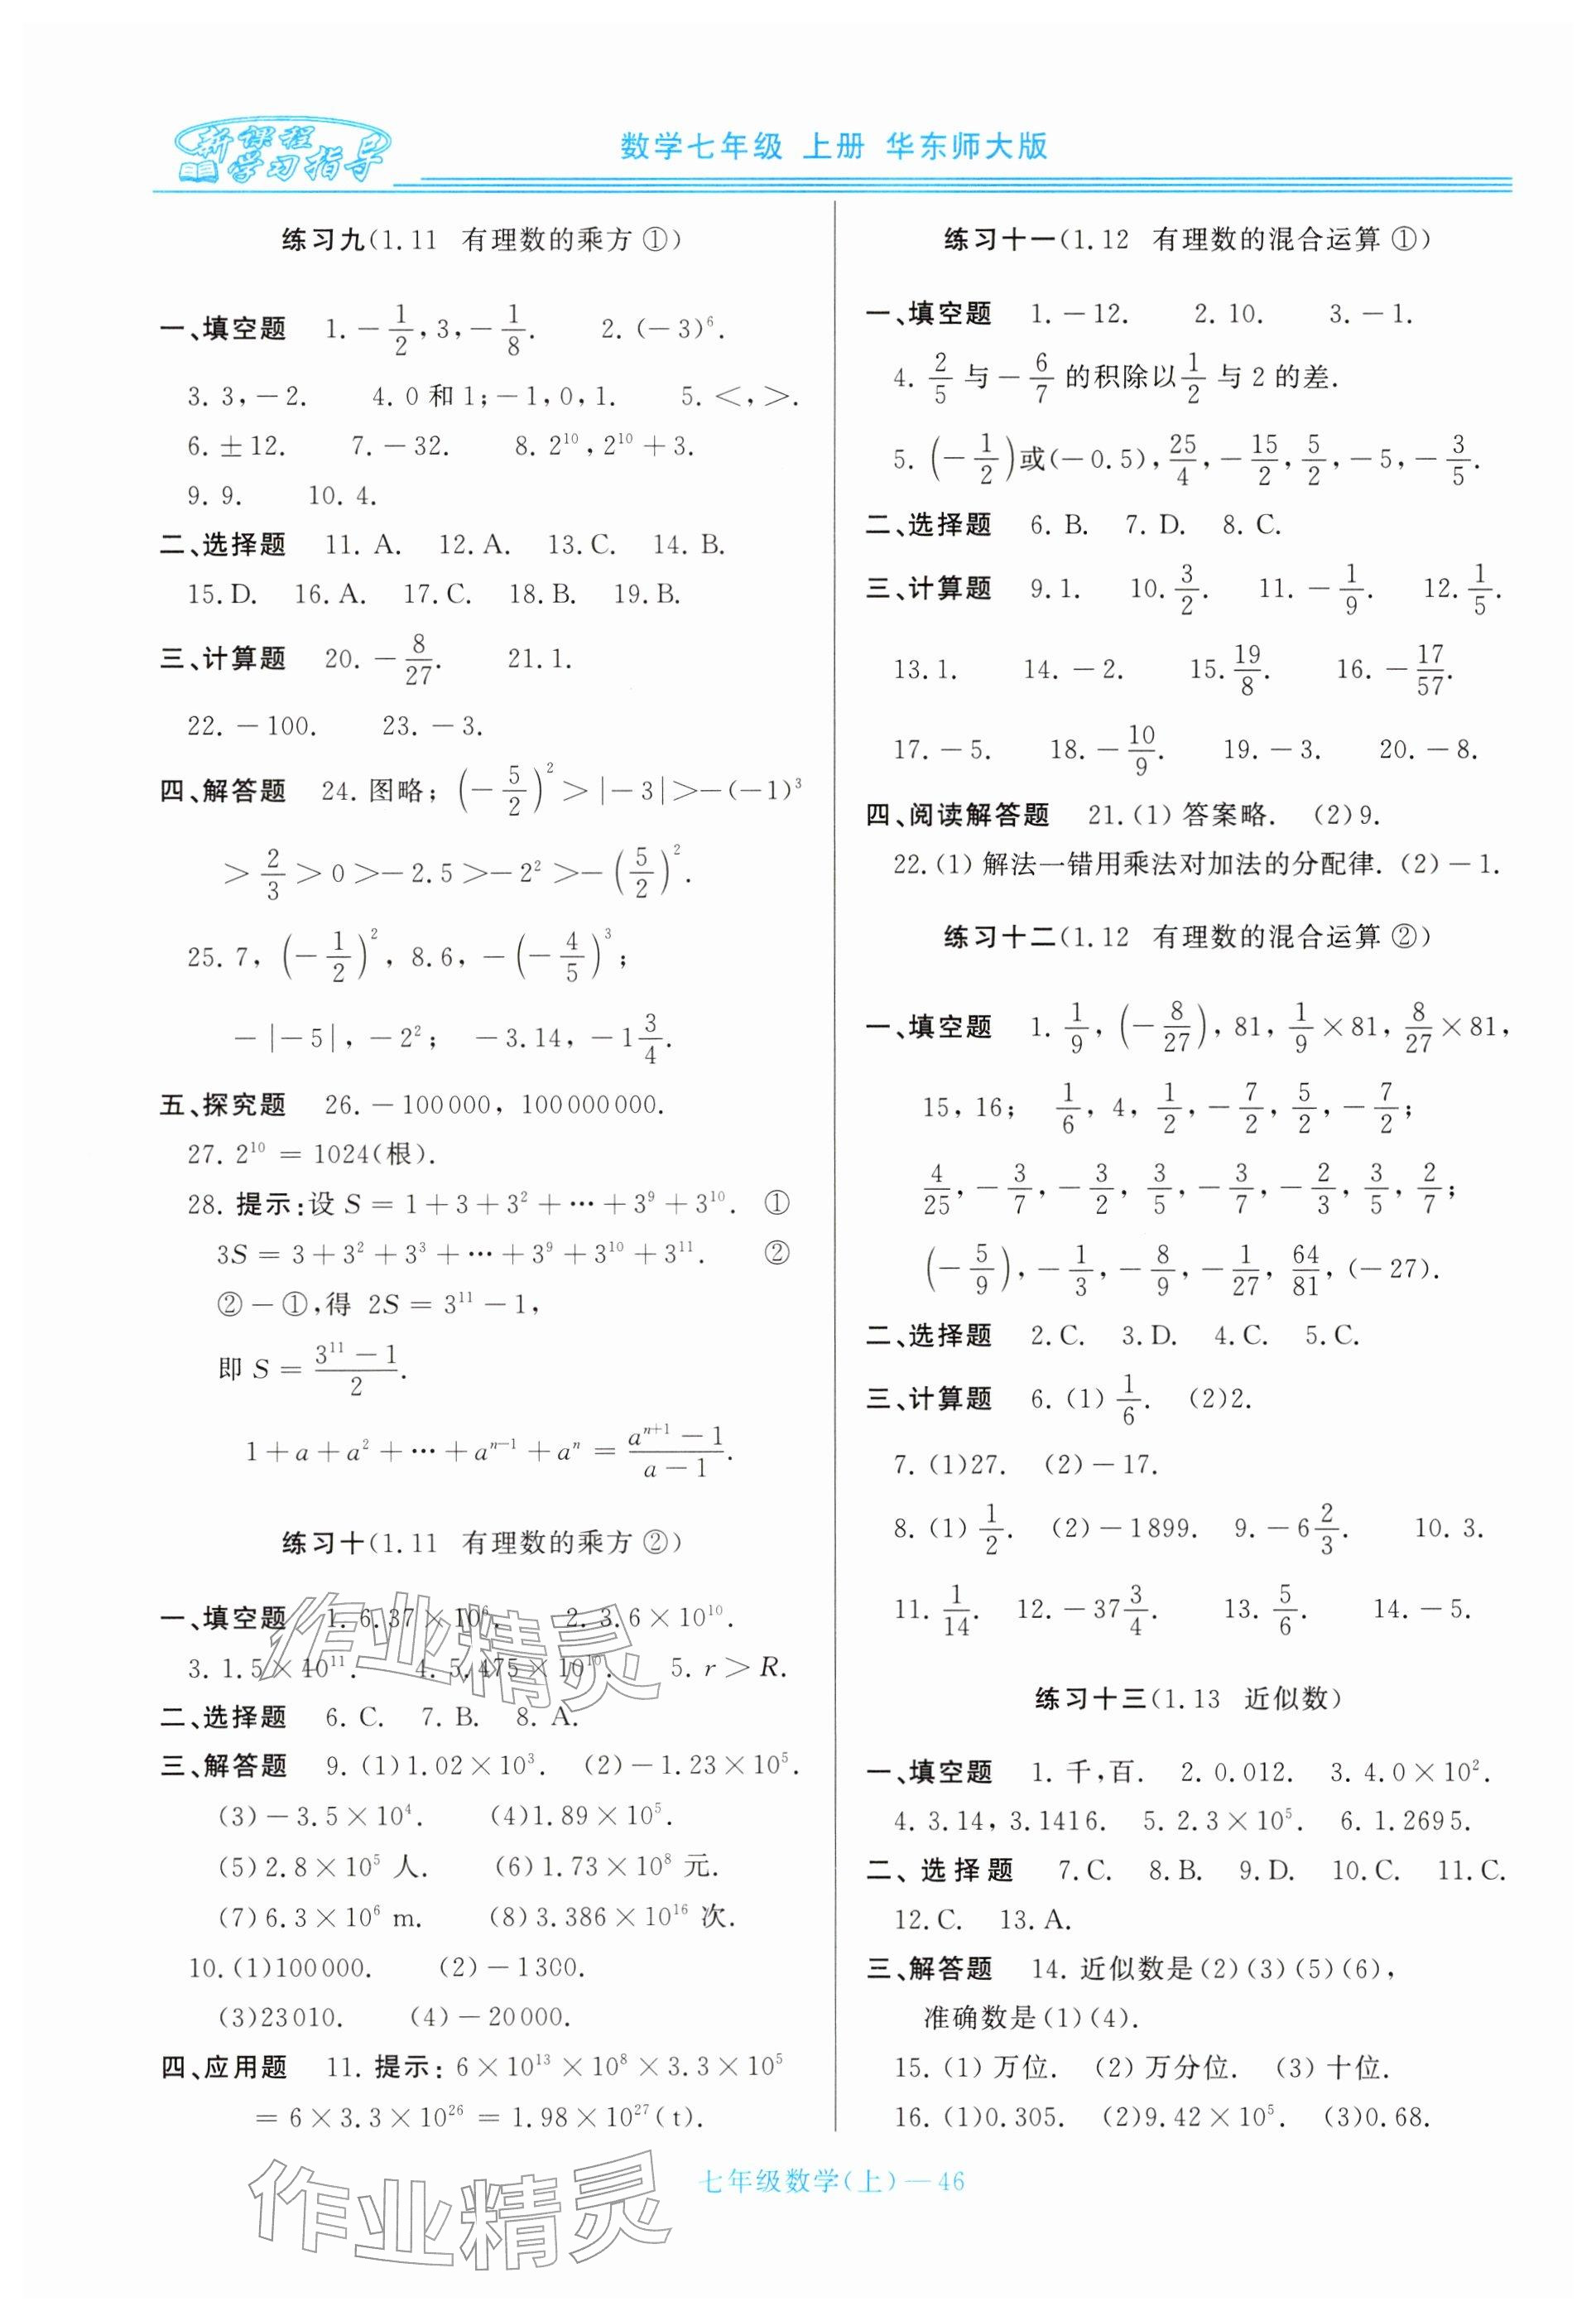 新课程
学习指导
数学七年级 上册 华东师大版
练习九(1.11 有理数的乘方 ①)
一、填空题 1. －1/2, 3, －1/8. 2. (－3)⁶.
3. 3, －2. 4. 0 和 1; －1, 0, 1. 5. ＜, ＞.
6. ±12. 7. －32. 8. 2¹⁰, 2¹⁰＋3.
9. 9. 10. 4.
二、选择题 11. A. 12. A. 13. C. 14. B.
15. D. 16. A. 17. C. 18. B. 19. B.
三、计算题 20. －8/27. 21. 1.
22. －100. 23. －3.
四、解答题 24. 图略; (－5/2)²＞|－3|＞－(－1)³
＞2/3＞0＞－2.5＞－2²＞－(5/2)².
25. 7, (－1/2)², 8.6, －(－4/5)³;
－|－5|, －2²; －3.14, －1 3/4.
五、探究题 26. －100000, 100000000.
27. 2¹⁰＝1024(根).
28. 提示:设 S＝1＋3＋3²＋…＋3⁹＋3¹⁰. ①
3S＝3＋3²＋3³＋…＋3⁹＋3¹⁰＋3¹¹. ②
②－①,得 2S＝3¹¹－1,
即 S＝(3¹¹－1)/2.
1＋a＋a²＋…＋aⁿ⁻¹＋aⁿ＝(aⁿ⁺¹－1)/(a－1).
练习十(1.11 有理数的乘方 ②)
一、填空题 1. 6.37×10⁶. 2. 3.6×10¹⁰.
3. 1.5×10¹¹. 4. 5.475×10¹⁰. 5. r＞R.
二、选择题 6. C. 7. B. 8. A.
三、解答题 9. (1)1.02×10³. (2)－1.23×10⁵.
(3)－3.5×10⁴. (4)1.89×10⁵.
(5)2.8×10⁵ 人. (6)1.73×10⁸ 元.
(7)6.3×10⁶ m. (8)3.386×10¹⁶ 次.
10. (1)100000. (2)－1300.
(3)23010. (4)－20000.
四、应用题 11. 提示: 6×10¹³×10⁸×3.3×10⁵
＝6×3.3×10²⁶＝1.98×10²⁷(t).
练习十一(1.12 有理数的混合运算 ①)
一、填空题 1. －12. 2. 10. 3. －1.
4. 2/5 与 －6/7 的积除以 1/2 与 2 的差.
5. (－1/2)或(－0.5), 25/4, －15/2, 5/2, －5, －3/5.
二、选择题 6. B. 7. D. 8. C.
三、计算题 9. 1. 10. 3/2. 11. －1/9. 12. 1/5.
13. 1. 14. －2. 15. 19/8. 16. －17/57.
17. －5. 18. －10/9. 19. －3. 20. －8.
四、阅读解答题 21. (1) 答案略. (2)9.
22. (1) 解法一错用乘法对加法的分配律. (2)－1.
练习十二(1.12 有理数的混合运算 ②)
一、填空题 1. 1/9, (－8/27), 81, 1/9×81, 8/27×81,
15, 16; 1/6, 4, 1/2, －7/2, 5/2, －7/2;
4/25, －3/7, －3/2, 3/5, －3/7, －2/3, 3/5, 2/7;
(－5/9), －1/3, －8/9, －1/27, 64/81, (－27).
二、选择题 2. C. 3. D. 4. C. 5. C.
三、计算题 6. (1) 1/6. (2)2.
7. (1)27. (2)－17.
8. (1) 1/2. (2)－1899. 9. －6 2/3. 10. 3.
11. 1/14. 12. －37 3/4. 13. 5/6. 14. －5.
练习十三(1.13 近似数)
一、填空题 1. 千,百. 2. 0.012. 3. 4.0×10².
4. 3.14, 3.1416. 5. 2.3×10⁵. 6. 1.2695.
二、选择题 7. C. 8. B. 9. D. 10. C. 11. C.
12. C. 13. A.
三、解答题 14. 近似数是(2)(3)(5)(6),
准确数是(1)(4).
15. (1) 万位. (2) 万分位. (3) 十位.
16. (1)0.305. (2)9.42×10⁵. (3)0.68.
七年级数学(上)—46
作业精灵
作业精灵